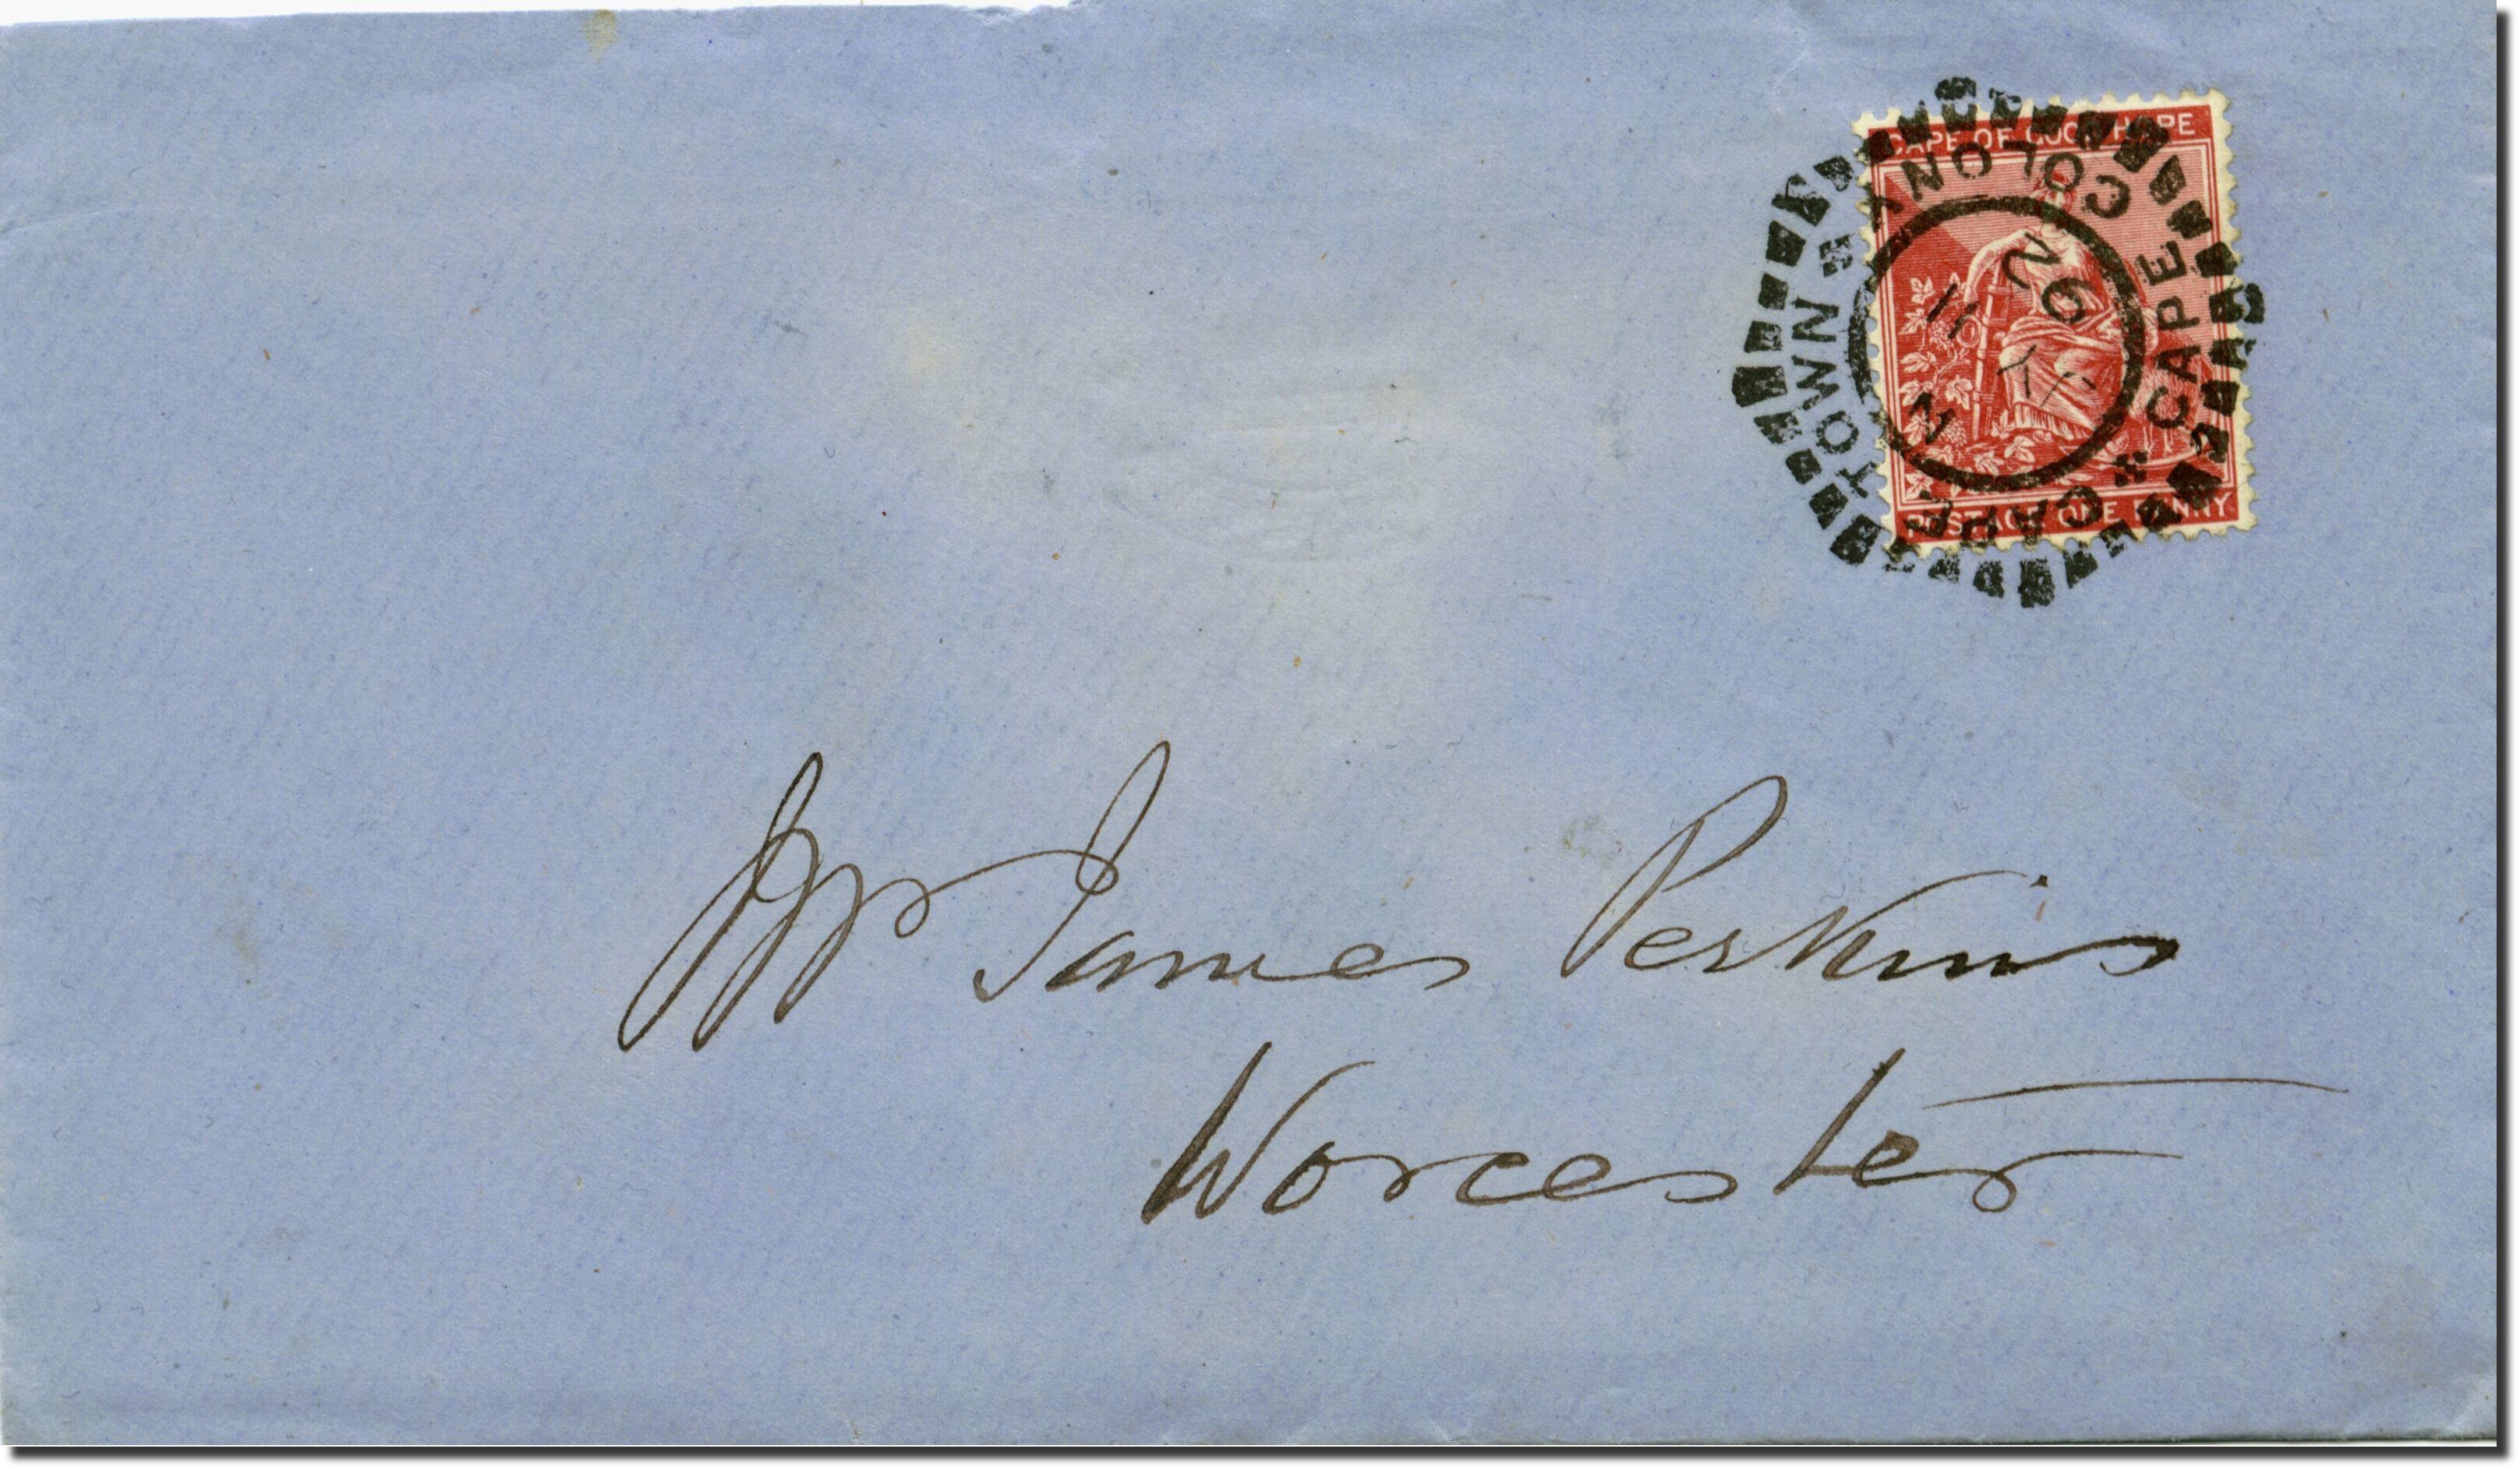 CAPE OF GOOD HOPE
POSTAGE ONE PENNY
CAPE TOWN
CAPE COLONY
N
JY
11
92
Mr James Perkins
Worcester